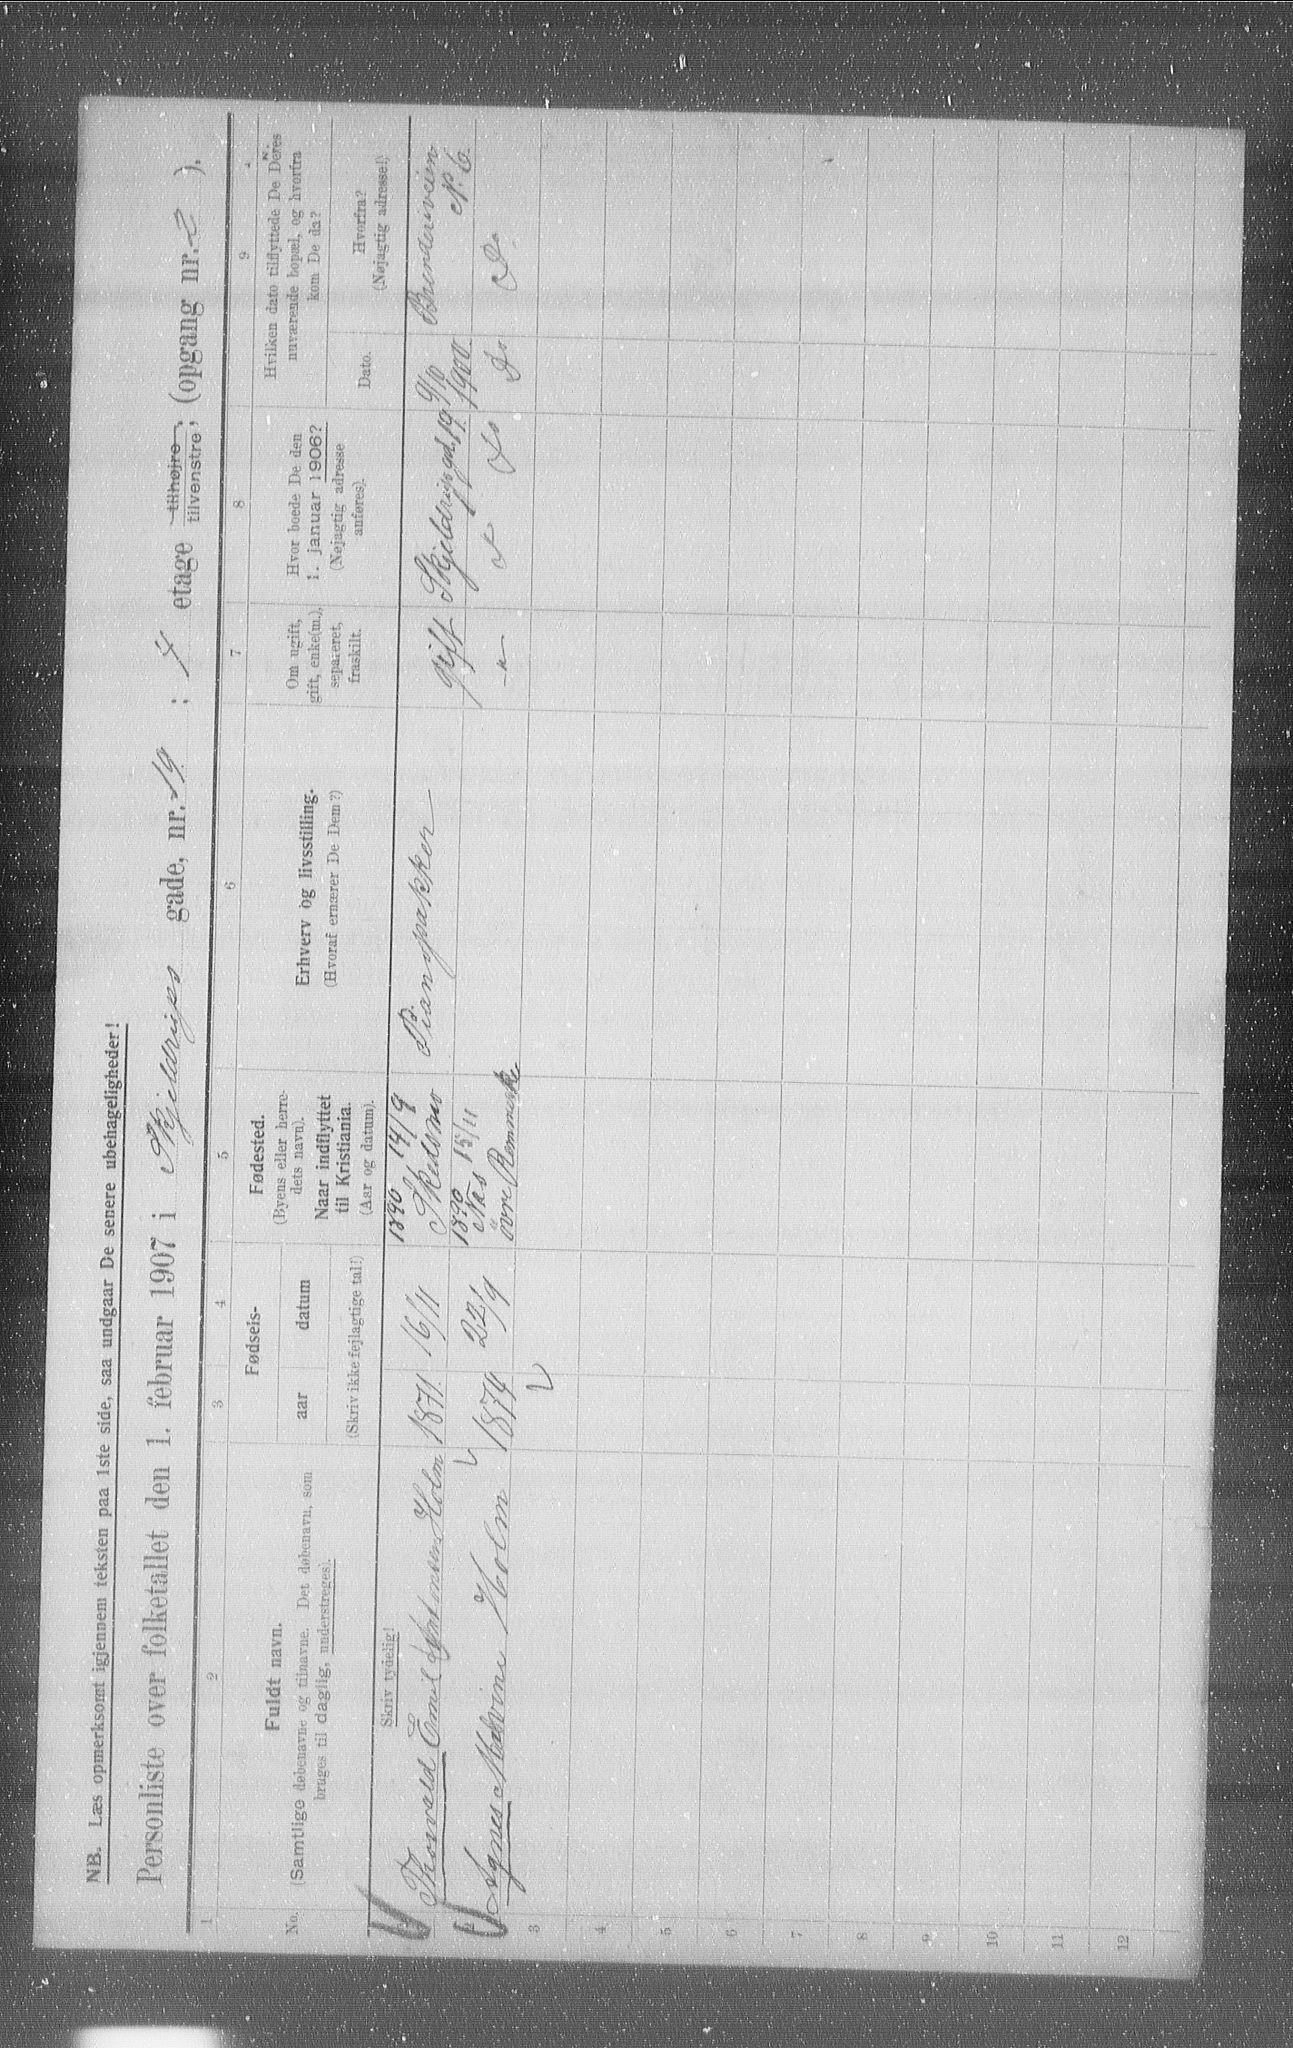 NB. Læs opmerksomt igjennem teksten paa 1ste side, saa undgaar De senere ubehageligheder!
Personliste over folketallet den 1. februar 1907 i Skjeldrups gade, nr. 19 ; 4 etage tilhøjre, tilvenstre, (opgang nr. 2 ).
1 2 3 4 5 6 7 8 9
No.
Fuldt navn.
(Samtlige døbenavne og tilnavne. Det døbenavn, som
bruges til daglig, understreges).
Skriv tydelig!
Fødsels-
aar datum
(Skriv ikke fejlagtige tal!)
Fødested.
(Byens eller herre-
dets navn).
Naar indflyttet
til Kristiania.
(Aar og datum).
Erhverv og livsstilling.
(Hvoraf ernærer De Dem?)
Om ugift,
gift, enke(m.),
separeret,
fraskilt.
Hvor boede De den
1. januar 1906?
(Nøjagtig adresse
anføres).
Hvilken dato tilflyttede De Deres
nuværende bopæl, og hvorfra
kom De da?
Dato.
Hvorfra?
(Nøjagtig adresse!)
Thorvald Emil Holm 1871 16/11 1890 14/9 Skedsmo Pianopakker gift Skjeldrups gd. 19 9/10 1900 N. 6.
Agnes Malvine Holm 1874 22/9 1890 15/11 Næs øvre Rommerike -"- Do Do Do
3
4
5
6
7
8
9
10
11
12